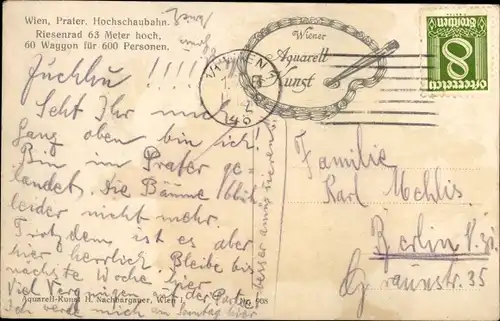 Wien, Prater. Hochschaubahn.
Riesenrad 63 Meter hoch,
60 Waggon für 600 Personen.
Juchhu !!!!
Seht Ihr mich
Ganz oben bin ich!
Bin im Prater ge
landet. Die Bäume blüh
leider nicht mehr.
Trotzdem ist es aber
hier herrlich. Bleibe bis
nächste Woche hier
Viel Vergnügen auf der Partie
Wiener
Aquarell
Kunst
WIEN
8
Groschen
Österreich
Familie
Karl Mehlis
Berlin
Graunstr. 35
Aquarell-Kunst H. Nachbargauer, Wien I
No. 908